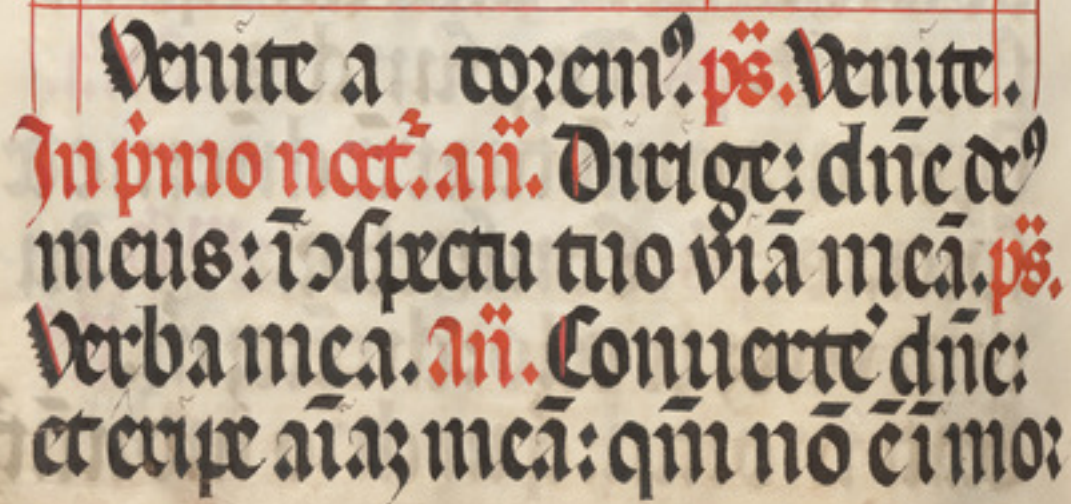 Venite a dorem⁹. ps̄. Venite.
In p̾mo noct᷑. an̄. Dirige: dn̄e de⁹
meus: ī ↄspectu tuo viā meā. ps̄.
Verba mea. an̄. Conuerte dn̄e:
et eripe aīaꝫ meā: qm̄ nō ē ī moꝛ